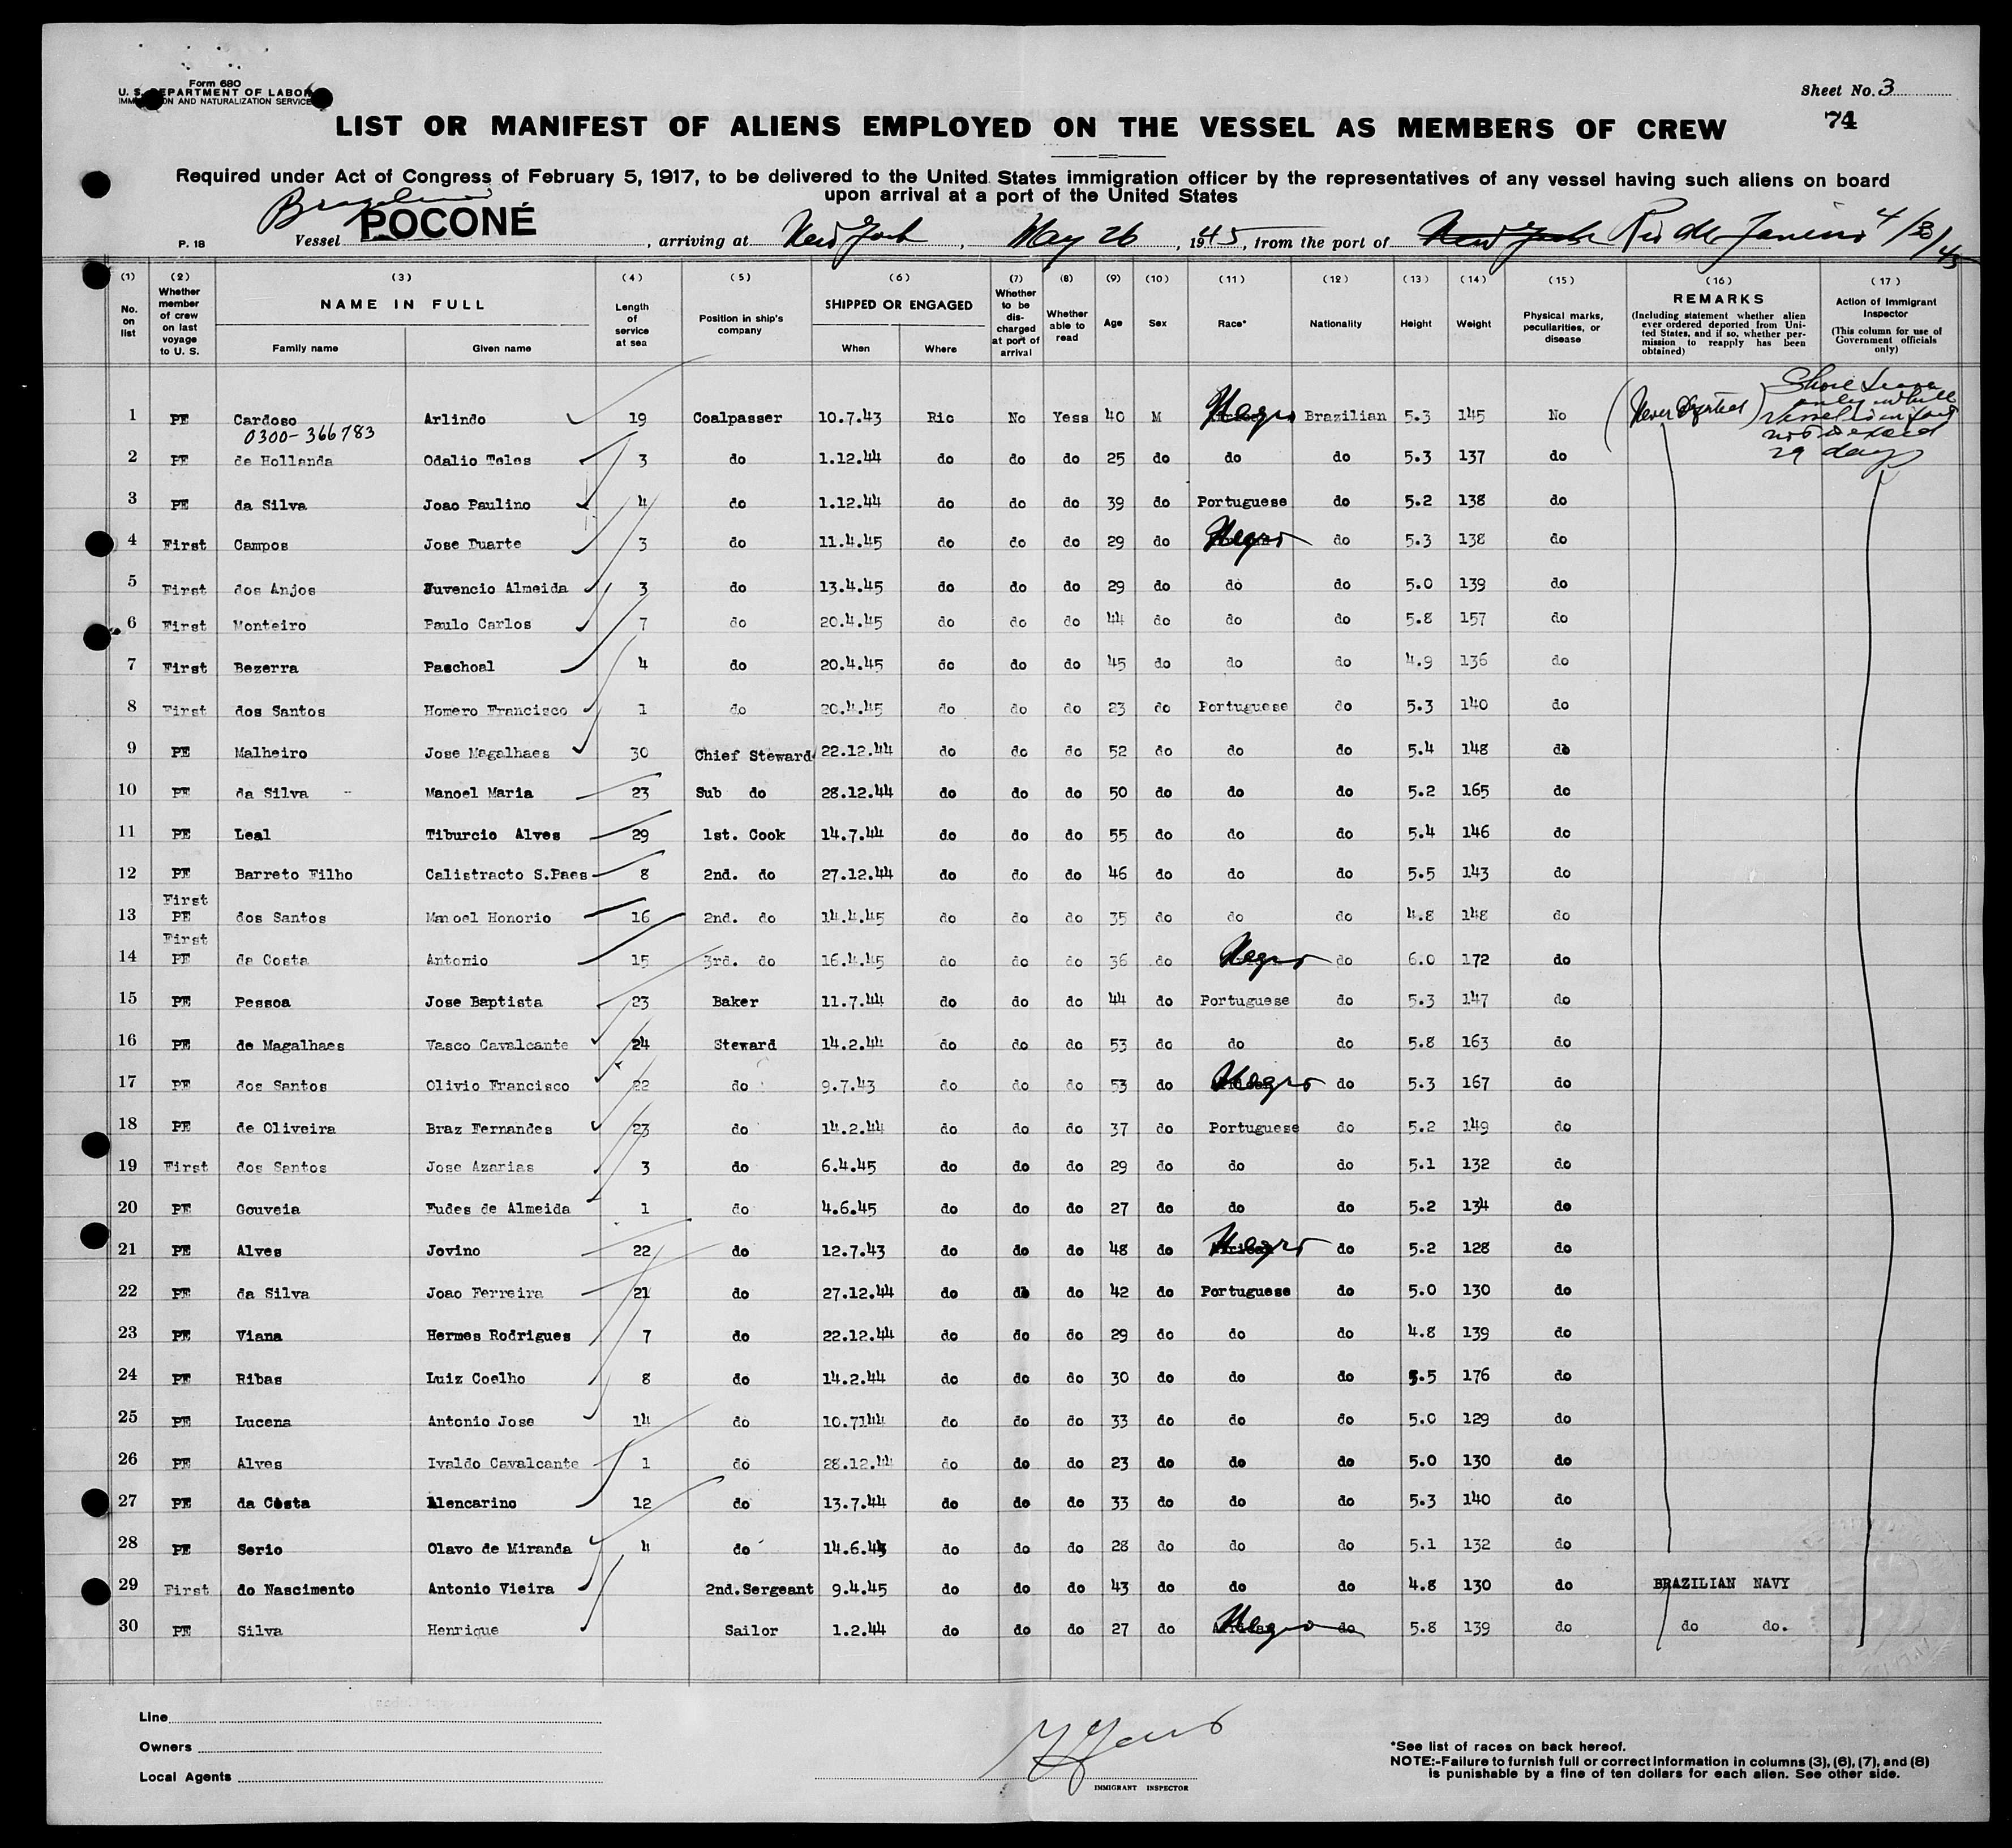 Form 680
U. S. DEPARTMENT OF LABOR
IMMIGRATION AND NATURALIZATION SERVICE
Sheet No. 3
74
LIST OR MANIFEST OF ALIENS EMPLOYED ON THE VESSEL AS MEMBERS OF CREW
Required under Act of Congress of February 5, 1917, to be delivered to the United States immigration officer by the representatives of any vessel having such aliens on board
upon arrival at a port of the United States
Brazilian
P. 18 Vessel POCONÉ, arriving at New York, May 26, 1945, from the port of New York Rio de Janeiro 4/30/45
(1) (2) (3) (4) (5) (6) (7) (8) (9) (10) (11) (12) (13) (14) (15) (16) (17)
No. on list
Whether member of crew on last voyage to U. S.
NAME IN FULL
Family name Given name
Length of service at sea
Position in ship's company
SHIPPED OR ENGAGED
When Where
Whether to be discharged at port of arrival
Whether able to read
Age
Sex
Race*
Nationality
Height
Weight
Physical marks, peculiarities, or disease
REMARKS
(Including statement whether alien ever ordered deported from United States, and if so, whether permission to reapply has been obtained)
Action of Immigrant Inspector
(This column for use of Government officials only)
Shore Leave
only while
vessel is in port
not to exceed
29 days
1 PE Cardoso Arlindo 19 Coalpasser 10.7.43 Rio No Yess 40 M Negro Brazilian 5.3 145 No (Never Deported)
0300-366783
2 PE de Hollanda Odalio Teles 3 do 1.12.44 do do do 25 do do do 5.3 137 do
3 PE da Silva Joao Paulino 4 do 1.12.44 do do do 39 do Portuguese do 5.2 138 do
4 First Campos Jose Duarte 3 do 11.4.45 do do do 29 do Negro do 5.3 138 do
5 First dos Anjos Juvencio Almeida 3 do 13.4.45 do do do 29 do do do 5.0 139 do
6 First Monteiro Paulo Carlos 7 do 20.4.45 do do do 44 do do do 5.8 157 do
7 First Bezerra Paschoal 4 do 20.4.45 do do do 45 do do do 4.9 136 do
8 First dos Santos Homero Francisco 1 do 20.4.45 do do do 23 do Portuguese do 5.3 140 do
9 PE Malheiro Jose Magalhaes 30 Chief Steward 22.12.44 do do do 52 do do do 5.4 148 do
10 PE da Silva - Manoel Maria 23 Sub do 28.12.44 do do do 50 do do do 5.2 165 do
11 PE Leal Tiburcio Alves 29 1st. Cook 14.7.44 do do do 55 do do do 5.4 146 do
12 PE Barreto Filho Calistracto S.Paes 8 2nd. do 27.12.44 do do do 46 do do do 5.5 143 do
First
13 PE dos Santos Manoel Honorio 16 2nd. do 14.4.45 do do do 35 do do do 4.8 148 do
First
14 PE da Costa Antonio 15 3rd. do 16.4.45 do do do 36 do Negro do 6.0 172 do
15 PE Pessoa Jose Baptista 23 Baker 11.7.44 do do do 44 do Portuguese do 5.3 147 do
16 PE de Magalhaes Vasco Cavalcante 24 Steward 14.2.44 do do do 53 do do do 5.8 163 do
17 PE dos Santos Olivio Francisco 22 do 9.7.43 do do do 53 do Negro do 5.3 167 do
18 PE de Oliveira Braz Fernandes 23 do 14.2.44 do do do 37 do Portuguese do 5.2 149 do
19 First dos Santos Jose Azarias 3 do 6.4.45 do do do 29 do do do 5.1 132 do
20 PE Gouveia Eudes de Almeida 1 do 4.6.45 do do do 27 do do do 5.2 134 do
21 PE Alves Jovino 22 do 12.7.43 do do do 48 do Negro do 5.2 128 do
22 PE da Silva Joao Ferreira 21 do 27.12.44 do do do 42 do Portuguese do 5.0 130 do
23 PE Viana Hermes Rodrigues 7 do 22.12.44 do do do 29 do do do 4.8 139 do
24 PE Ribas Luiz Coelho 8 do 14.2.44 do do do 30 do do do 5.5 176 do
25 PE Lucena Antonio Jose 14 do 10.7144 do do do 33 do do do 5.0 129 do
26 PE Alves Ivaldo Cavalcante 1 do 28.12.44 do do do 23 do do do 5.0 130 do
27 PE da Costa Alencarino 12 do 13.7.44 do do do 33 do do do 5.3 140 do
28 PE Serio Olavo de Miranda 4 do 14.6.43 do do do 28 do do do 5.1 132 do
29 First do Nascimento Antonio Vieira 2nd.Sergeant 9.4.45 do do do 43 do do do 4.8 130 do BRAZILIAN NAVY
30 PE Silva Henrique Sailor 1.2.44 do do do 27 do Negro do 5.8 139 do do do.
Line
Owners
Local Agents
IMMIGRANT INSPECTOR
*See list of races on back hereof.
NOTE:-Failure to furnish full or correct information in columns (3), (6), (7), and (8)
is punishable by a fine of ten dollars for each alien. See other side.